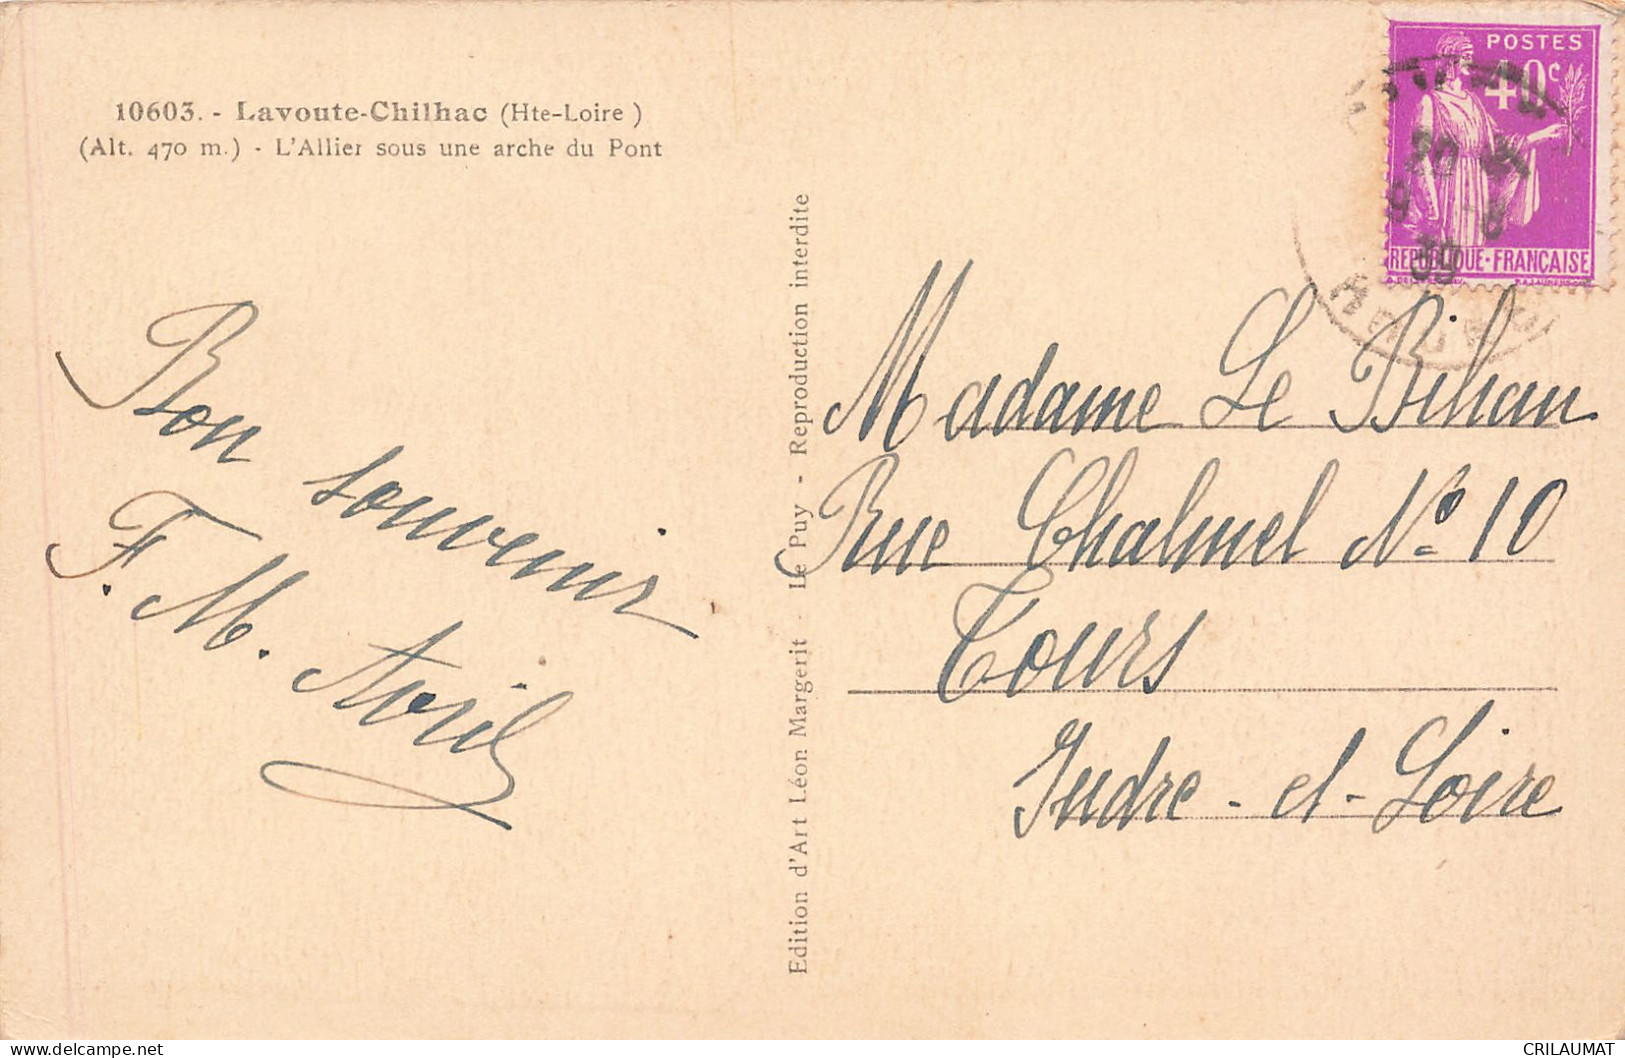 10603. - Lavoute-Chilhac (Hte-Loire)
(Alt. 470 m.) - L'Allier sous une arche du Pont
Bon souvenir
F. M. Avril
Edition d'Art Léon Margerit - Le Puy - Reproduction interdite
POSTES
40c
REPUBLIQUE-FRANÇAISE
39
Madame Le Bihan
Rue Chalmel No 10
Tours
Indre-et-Loire
CRILAUMAT